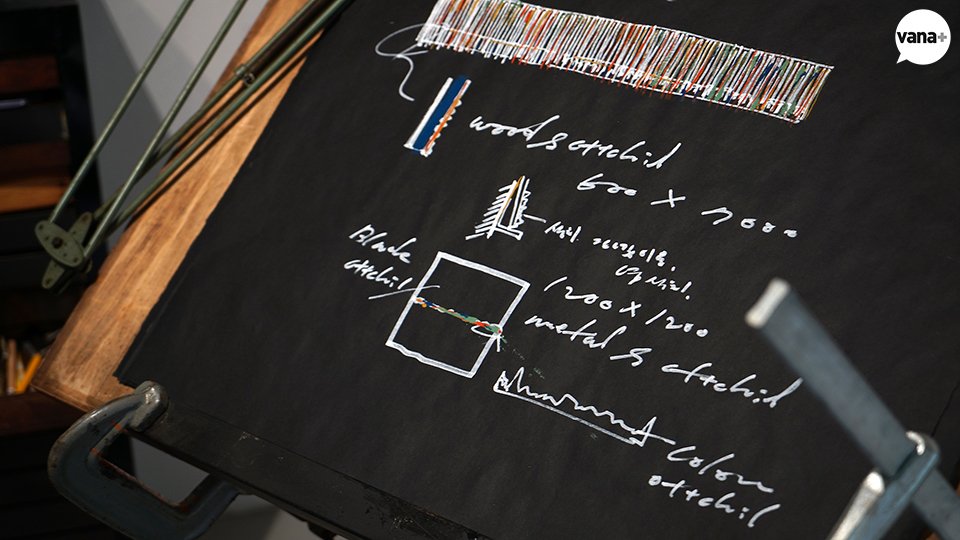 vana+
wood & ottchil
600 X 7000
Black
ottchil
1200 X 1200
metal & ottchil
Colour
ottchil